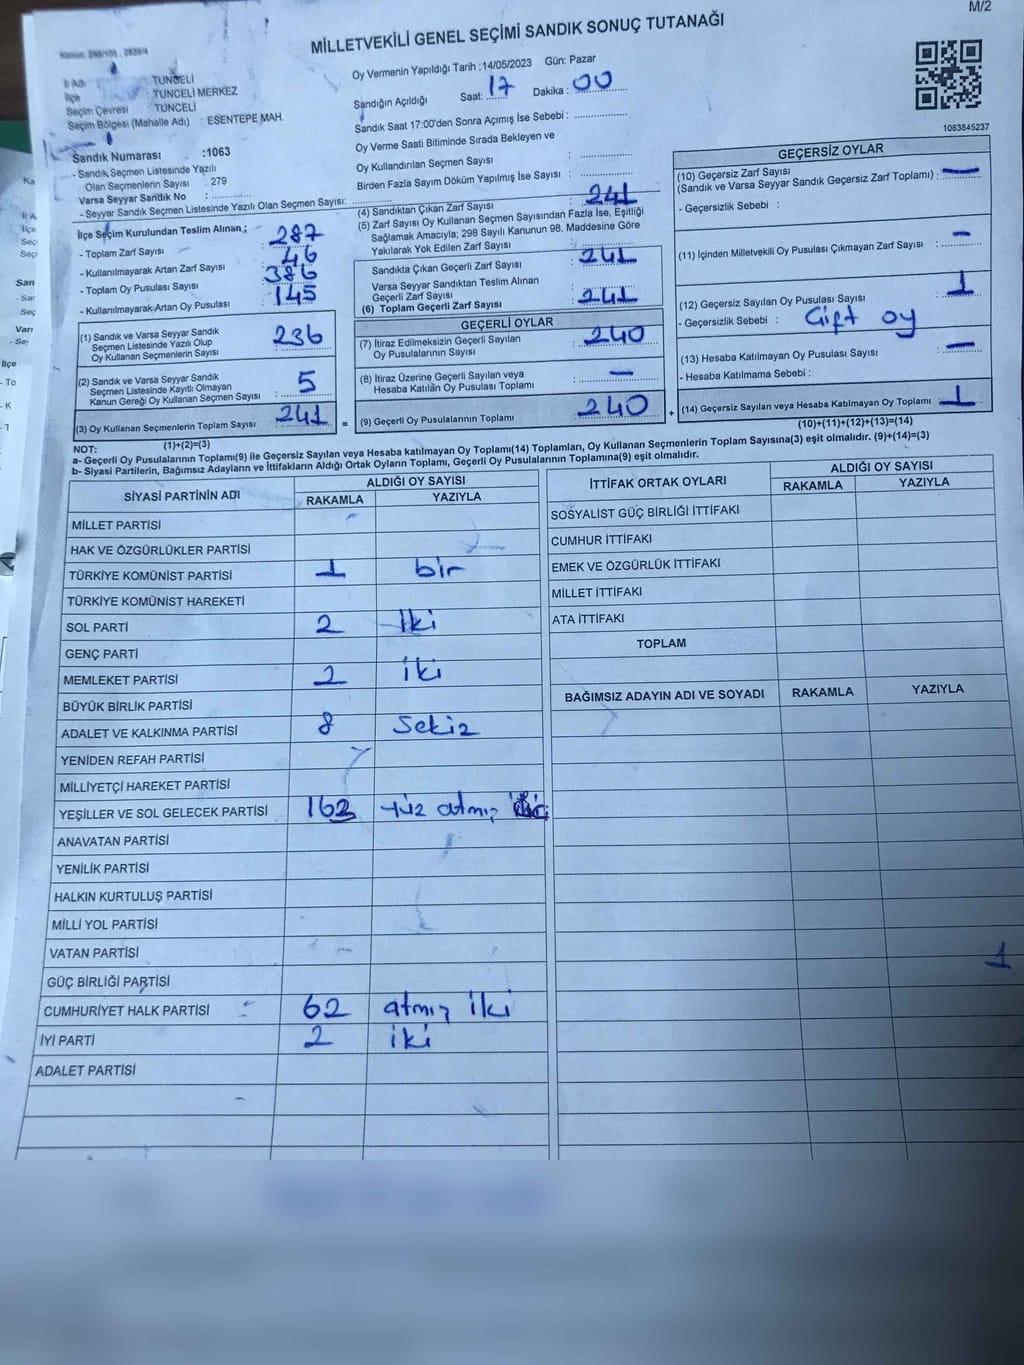 M/2
MİLLETVEKİLİ GENEL SEÇİMİ SANDIK SONUÇ TUTANAĞI
İl Adı : TUNCELİ
İlçe : TUNCELİ MERKEZ
Seçim Çevresi : TUNCELİ
Seçim Bölgesi (Mahalle Adı) : ESENTEPE MAH.
Sandık Numarası :1063
- Sandık Seçmen Listesinde Yazılı
Olan Seçmenlerin Sayısı : 279
Varsa Seyyar Sandık No :
- Seyyar Sandık Seçmen Listesinde Yazılı Olan Seçmen Sayısı:
Oy Vermenin Yapıldığı Tarih :14/05/2023 Gün: Pazar
Sandığın Açıldığı Saat: 17 Dakika : 00
Sandık Saat 17:00'den Sonra Açımış İse Sebebi :
Oy Verme Saati Bitiminde Sırada Bekleyen ve
Oy Kullandırılan Seçmen Sayısı :
Birden Fazla Sayım Döküm Yapılmış İse Sayısı :
1063845237
İlçe Seçim Kurulundan Teslim Alınan ;
- Toplam Zarf Sayısı : 287
- Kullanılmayarak Artan Zarf Sayısı : 46
- Toplam Oy Pusulası Sayısı : 386
- Kullanılmayarak Artan Oy Pusulası : 145
(1) Sandık ve Varsa Seyyar Sandık
Seçmen Listesinde Yazılı Olup
Oy Kullanan Seçmenlerin Sayısı : 236
(2) Sandık ve Varsa Seyyar Sandık
Seçmen Listesinde Kayıtlı Olmayan
Kanun Gereği Oy Kullanan Seçmen Sayısı : 5
(3) Oy Kullanan Seçmenlerin Toplam Sayısı : 241 =
(1)+(2)=(3)
(4) Sandıktan Çıkan Zarf Sayısı : 241
(5) Zarf Sayısı Oy Kullanan Seçmen Sayısından Fazla İse, Eşitliği
Sağlamak Amacıyla; 298 Sayılı Kanunun 98. Maddesine Göre
Yakılarak Yok Edilen Zarf Sayısı :
Sandıkta Çıkan Geçerli Zarf Sayısı : 241
Varsa Seyyar Sandıktan Teslim Alınan
Geçerli Zarf Sayısı :
(6) Toplam Geçerli Zarf Sayısı : 241
GEÇERLİ OYLAR
(7) İtiraz Edilmeksizin Geçerli Sayılan
Oy Pusulalarının Sayısı : 240
(8) İtiraz Üzerine Geçerli Sayılan veya
Hesaba Katılan Oy Pusulası Toplamı : —
(9) Geçerli Oy Pusulalarının Toplamı : 240 +
GEÇERSİZ OYLAR
(10) Geçersiz Zarf Sayısı
(Sandık ve Varsa Seyyar Sandık Geçersiz Zarf Toplamı) : —
- Geçersizlik Sebebi :
(11) İçinden Milletvekili Oy Pusulası Çıkmayan Zarf Sayısı : —
(12) Geçersiz Sayılan Oy Pusulası Sayısı : 1
- Geçersizlik Sebebi : Çift oy
(13) Hesaba Katılmayan Oy Pusulası Sayısı : —
- Hesaba Katılmama Sebebi :
(14) Geçersiz Sayılan veya Hesaba Katılmayan Oy Toplamı : 1
(10)+(11)+(12)+(13)=(14)
NOT:
a- Geçerli Oy Pusulalarının Toplamı(9) ile Geçersiz Sayılan veya Hesaba katılmayan Oy Toplamı(14) Toplamları, Oy Kullanan Seçmenlerin Toplam Sayısına(3) eşit olmalıdır. (9)+(14)=(3)
b- Siyasi Partilerin, Bağımsız Adayların ve İttifakların Aldığı Ortak Oyların Toplamı, Geçerli Oy Pusulalarının Toplamına(9) eşit olmalıdır.
SİYASİ PARTİNİN ADI ALDIĞI OY SAYISI
RAKAMLA YAZIYLA
MİLLET PARTİSİ
HAK VE ÖZGÜRLÜKLER PARTİSİ
TÜRKİYE KOMÜNİST PARTİSİ 1 bir
TÜRKİYE KOMÜNİST HAREKETİ
SOL PARTİ 2 İki
GENÇ PARTİ
MEMLEKET PARTİSİ 2 iki
BÜYÜK BİRLİK PARTİSİ
ADALET VE KALKINMA PARTİSİ 8 Sekiz
YENİDEN REFAH PARTİSİ
MİLLİYETÇİ HAREKET PARTİSİ
YEŞİLLER VE SOL GELECEK PARTİSİ 163 yüz atmış
ANAVATAN PARTİSİ
YENİLİK PARTİSİ
HALKIN KURTULUŞ PARTİSİ
MİLLİ YOL PARTİSİ
VATAN PARTİSİ
GÜÇ BİRLİĞİ PARTİSİ
CUMHURİYET HALK PARTİSİ 62 atmış iki
İYİ PARTİ 2 iki
ADALET PARTİSİ
İTTİFAK ORTAK OYLARI ALDIĞI OY SAYISI
RAKAMLA YAZIYLA
SOSYALİST GÜÇ BİRLİĞİ İTTİFAKI
CUMHUR İTTİFAKI
EMEK VE ÖZGÜRLÜK İTTİFAKI
MİLLET İTTİFAKI
ATA İTTİFAKI
TOPLAM
BAĞIMSIZ ADAYIN ADI VE SOYADI RAKAMLA YAZIYLA
1